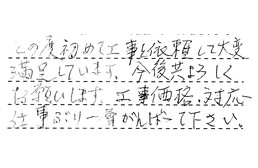 この度初めて工事を依頼して大変
満足しています。今後共よろしく
お願いします。工事価格、対応
仕事ぶり一番がんばって下さい。